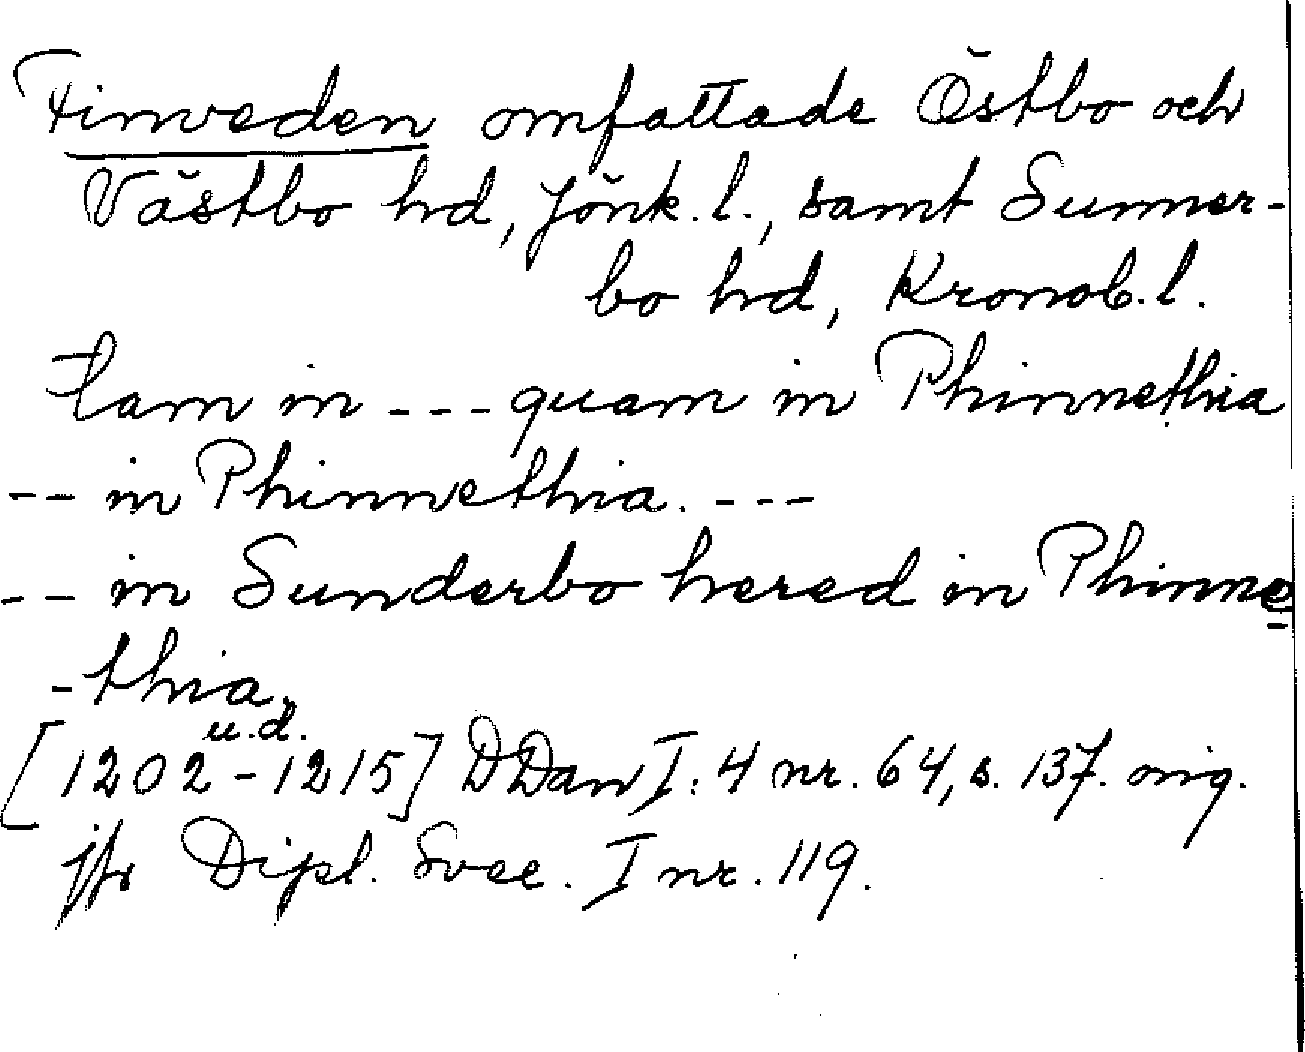 Finveden omfattade Östbo och
Västbo hd, Jönk. l., samt Sunner-
bo hd, Kronob. l.
tam in --- quam in Phinnethia
-- in Phinnethia. ---
-- in Sunderbo hered in Phinne
-thia.
u.d.
[1202-1215] DDan I:4 nr. 64, s. 137. orig.
jfr Dipl. Svec. I nr. 119.